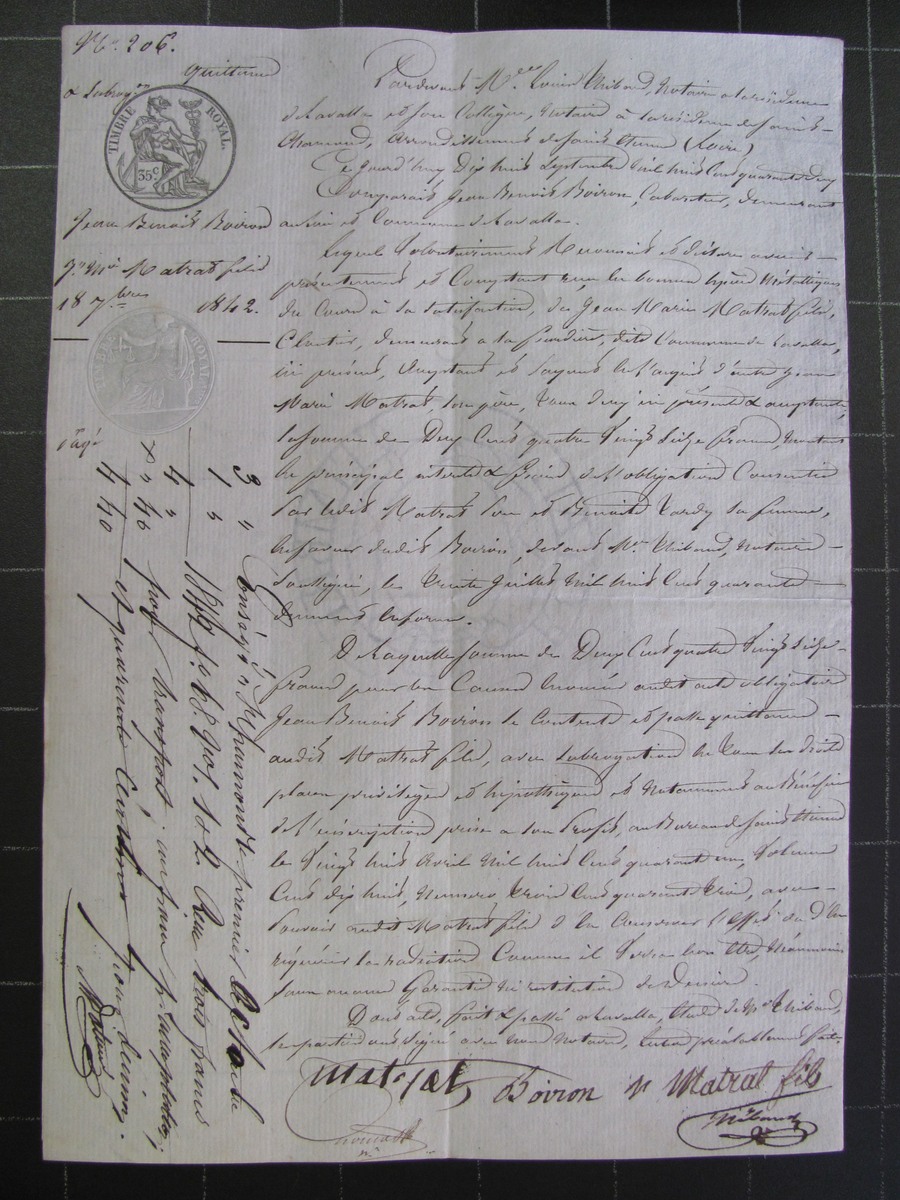 No. 206.
quittance
TIMBRE ROYAL.
35 c
Jean Benoit Boiron
Jn Mie Matrat fils
18 7bres 1842.
Pardevant Me Louis Thibaud, Notaire à la résidence
de Lavalla et son Collègue, Notaire à la résidence de Saint-
Chamond, arrondissement de Saint Etienne (Loire)
Cejourd'huy Dix huit Septembre Mil huit Cent quarante deux
Comparait Jean Benoit Boiron, Cabaretier, demeurant
au lieu et Commune de Lavalla.
Lequel Volontairement Reconnait et déclare avoir
présentement et Comptant reçu en bonnes espèces Métalliques
du Cours à sa Satisfaction, de Jean Marie Matrat fils,
Cloutier, demeurant à la dite Commune de Lavalla,
ici présent, acceptant et payant à l'acquit d'autre Jean
Marie Matrat, son père, aussi ici présent & acceptant,
la Somme de Deux Cent quatre Vingt Seize francs, Montant
en principal intérêts & frais de l'obligation Consentie
par ledit Matrat père et Benoite Tardy sa femme,
en faveur dudit Boiron, devant Me Thibaud, Notaire
Soussigné, le trente Juillet Mil huit Cent quarante
dument en forme.
De laquelle Somme de Deux Cent quatre Vingt Seize
francs pour les Causes énoncées audit acte obligatoire
Jean Benoit Boiron se Contente et passe quittance
audit Matrat fils, avec Subrogation en tous ses droits
places privilèges et hypothèques et Notamment au Bénéfice
de l'inscription prise à son Profit, au Bureau de Saint Etienne
le Vingt huit Avril Mil huit Cent quarante un, Volume
Cent dix huit, Numéro trois Cent quarante trois, avec
pouvoir audit Matrat fils d'en Conserver l'effet ou d'en
requérir la radiation Comme il Verra bon être, Néanmoins
sans aucune Garantie ni restitution de Deniers.
Dont acte, fait & passé à Lavalla, Etude de Me Thibaud,
les parties ont Signé avec Nous Notaires, lecture préalablement faite.
Matrat Boiron Jn Matrat fils
Thibaud
3 "
1 "
4 "
" 40
4 40
Enregistré à St Chamond le premier Octobre
1842 fo 68 Reçu trois francs
pour transport, un franc pr acceptation,
et quarante Centimes pour décime.